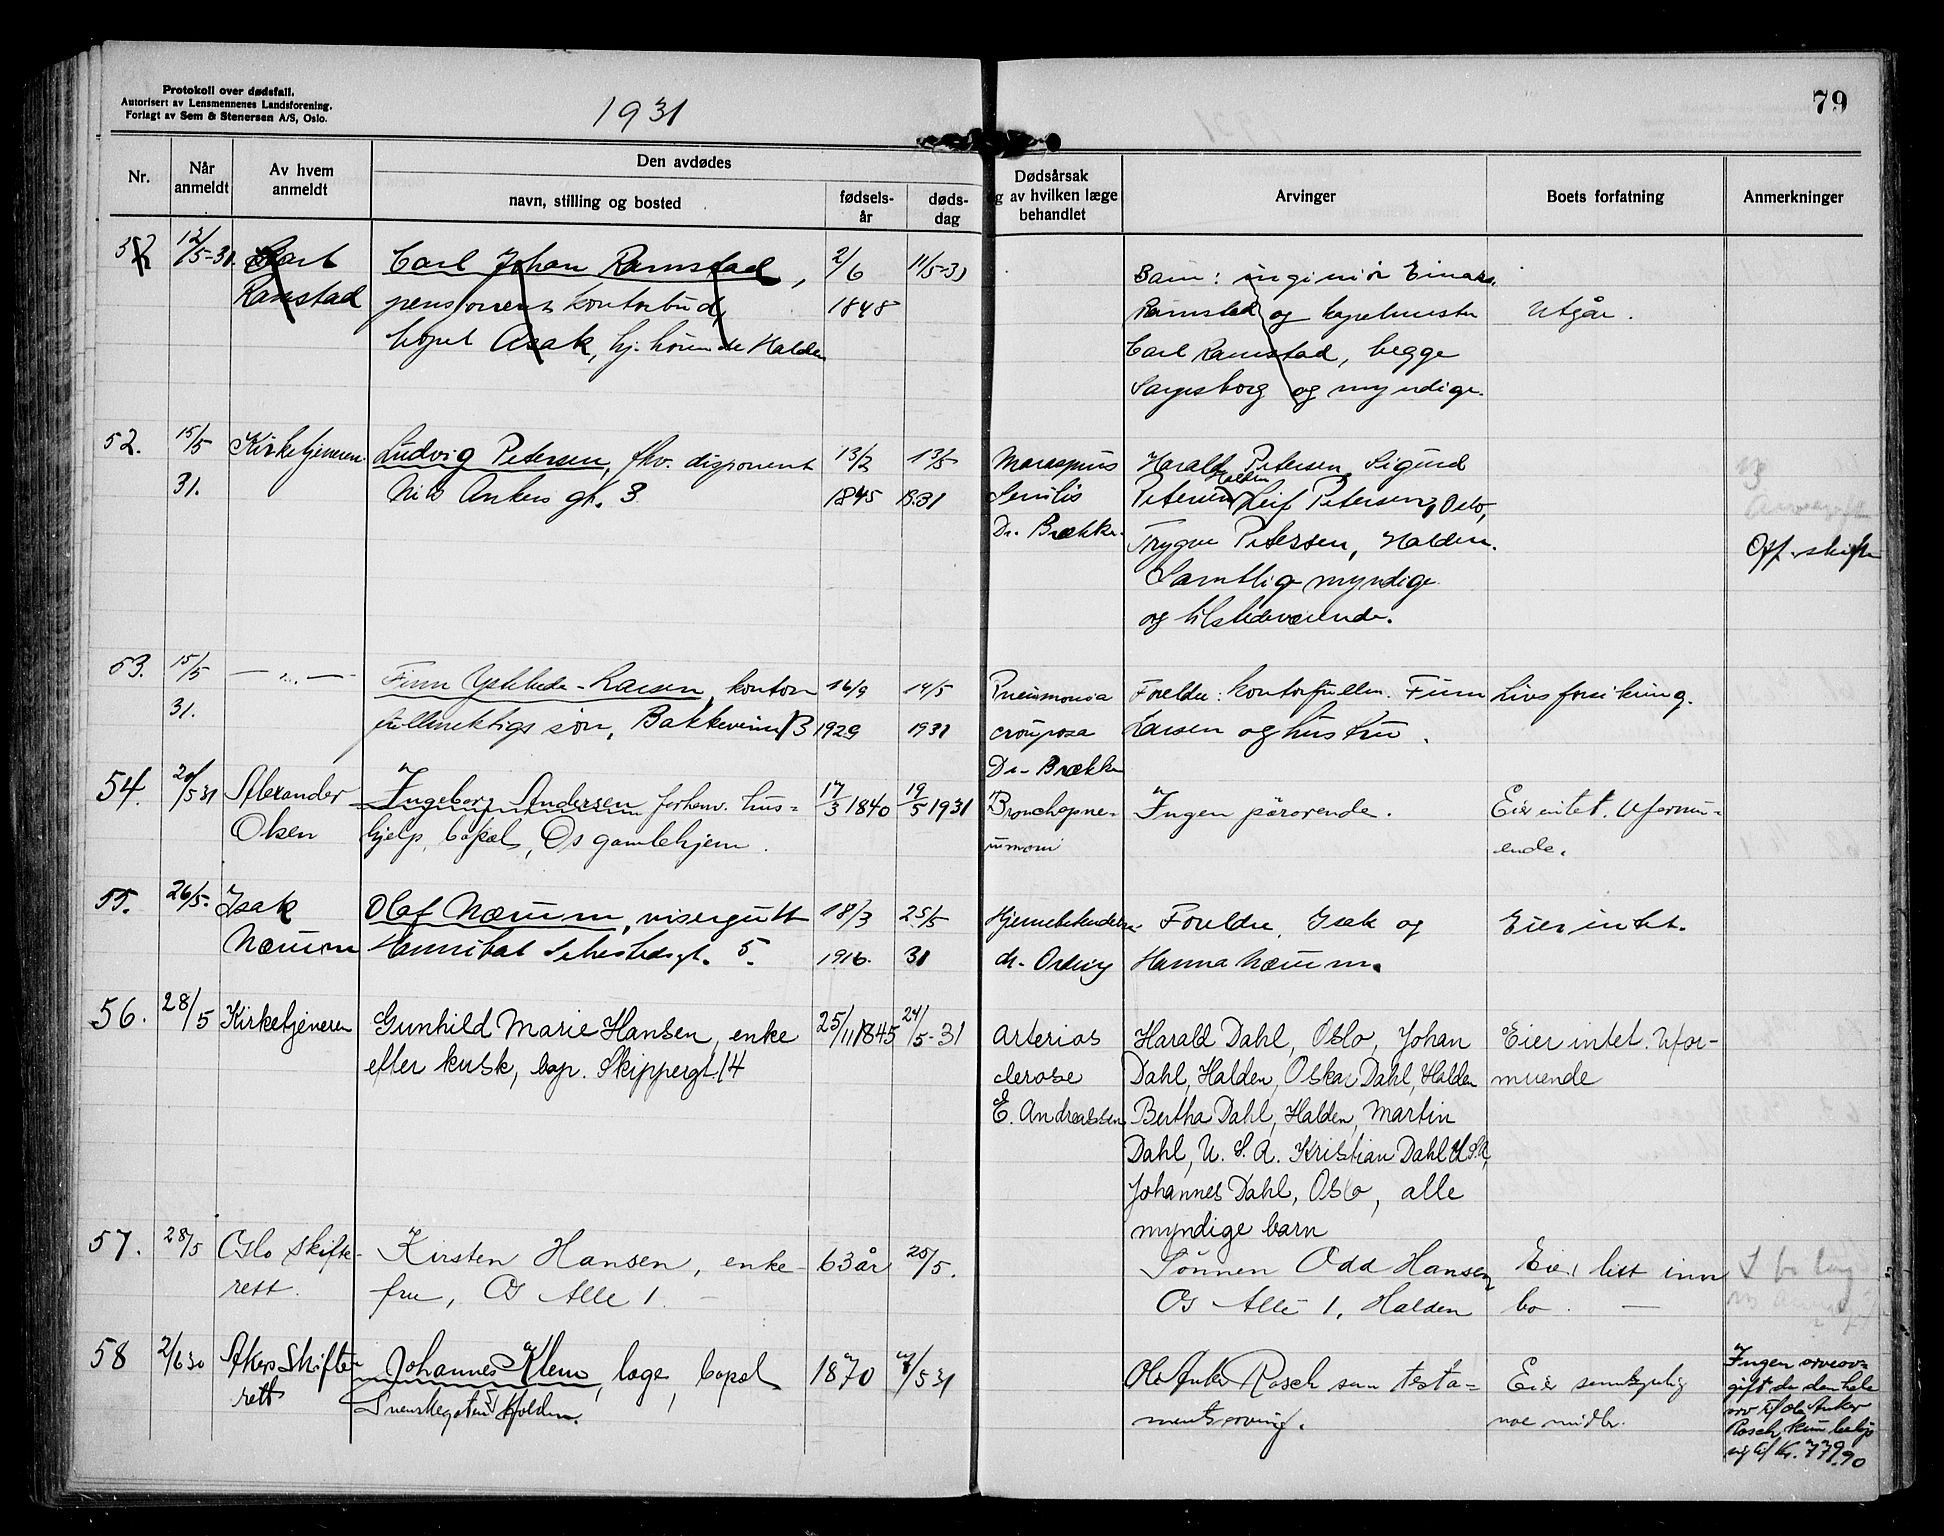 Protokoll over dødsfall.
Autorisert av Lensmennenes Landsforening.
Forlagt av Sem & Stenersen A/S, Oslo.
1931
79
Nr.
Når anmeldt
Av hvem anmeldt
Den avdødes
navn, stilling og bosted
fødsels-år
døds-dag
Dødsårsak
og av hvilken læge
behandlet
Arvinger
Boets forfatning
Anmerkninger
52
12/5-31.
Carl
Ramstad
Carl Johan Ramstad,
pensjonert kontorbud,
bopel Asak, hj. hörende Halden
2/6
1848
11/5-31
Barn: ingeniör Einar
Ramstad og kapelmester
Carl Ramstad, begge
Sarpsborg og myndige.
Utgår.
52.
15/5
31.
Kirketjeneren
Ludvig Petersen, fhv. disponent
Nils Ankers gt. 3.
13/2
1845
13/5
1931
Marasmus
Senilis
Dr. Brække.
Harald Petersen, Sigurd
Halden
Petersen, Leif Petersen, Oslo,
Trygve Petersen, Halden.
Samtlige myndige
og tilstedeværende.
Off. skifte
53.
15/5
31.
— „ —
Finn Ystehede-Larsen, kontor
fullmektigs sön, Bakkeveien 13
16/9
1929
14/5
1931
Pneumonia
crouposa
Dr. Brække
Foreldre: kontorfullm. Finn
Larsen og hustru.
Livsforsikring.
54.
20/5 31
Alexander
Olsen
Ingeborg Andersen forhenv. hus-
hjelp, bopæl, Os gamlehjem.
17/3 1840
19/5 1931
Bronchopne-
umoni
Ingen pårorende.
Eier intet. Uformu-
ende.
55.
26/5.
Isak
Næumm
Olaf Næumm, visergutt
Hannibal Sehestedsgt. 5.
18/3
1916.
25/5
31
dr. Ording
Foreldre, Isak og
Hanna Næumm.
Eier intet.
56.
28/5
Kirketjeneren
Gunhild Marie Hansen, enke
efter kusk, bop. Skippergt. 14
25/11 1845
24/5-31
Arterios
clerose
E. Andreassen
Harald Dahl, Oslo, Johan
Dahl, Halden, Oskar Dahl, Halden
Bertha Dahl, Halden, Martin
Dahl, U. S. A. Kristian Dahl U.S.A,
Johannes Dahl, Oslo, alle
myndige barn
Eier intet. Ufor-
muende
57.
28/5
Oslo skifte-
rett.
Kirsten Hansen, enke-
fru, Os Alle 1. —
63 år
25/5.
Sönnen Odd Hansen
Os Alle 1, Halden
Eier litt inn
bo. —
58
2/6 30
Akers Skifte
rett
Johannes Klem, læge, bopæl
Svenskegaten 5 Halden.
1870
/5 31
Ole Anker Rosch som testa-
mentsarving.
Eier sannsynlig
noe midler.
Ingen arveav-
gift da den hele
arv til Ole Anker
Rosch kun beløp
sig til Kr. 779.90